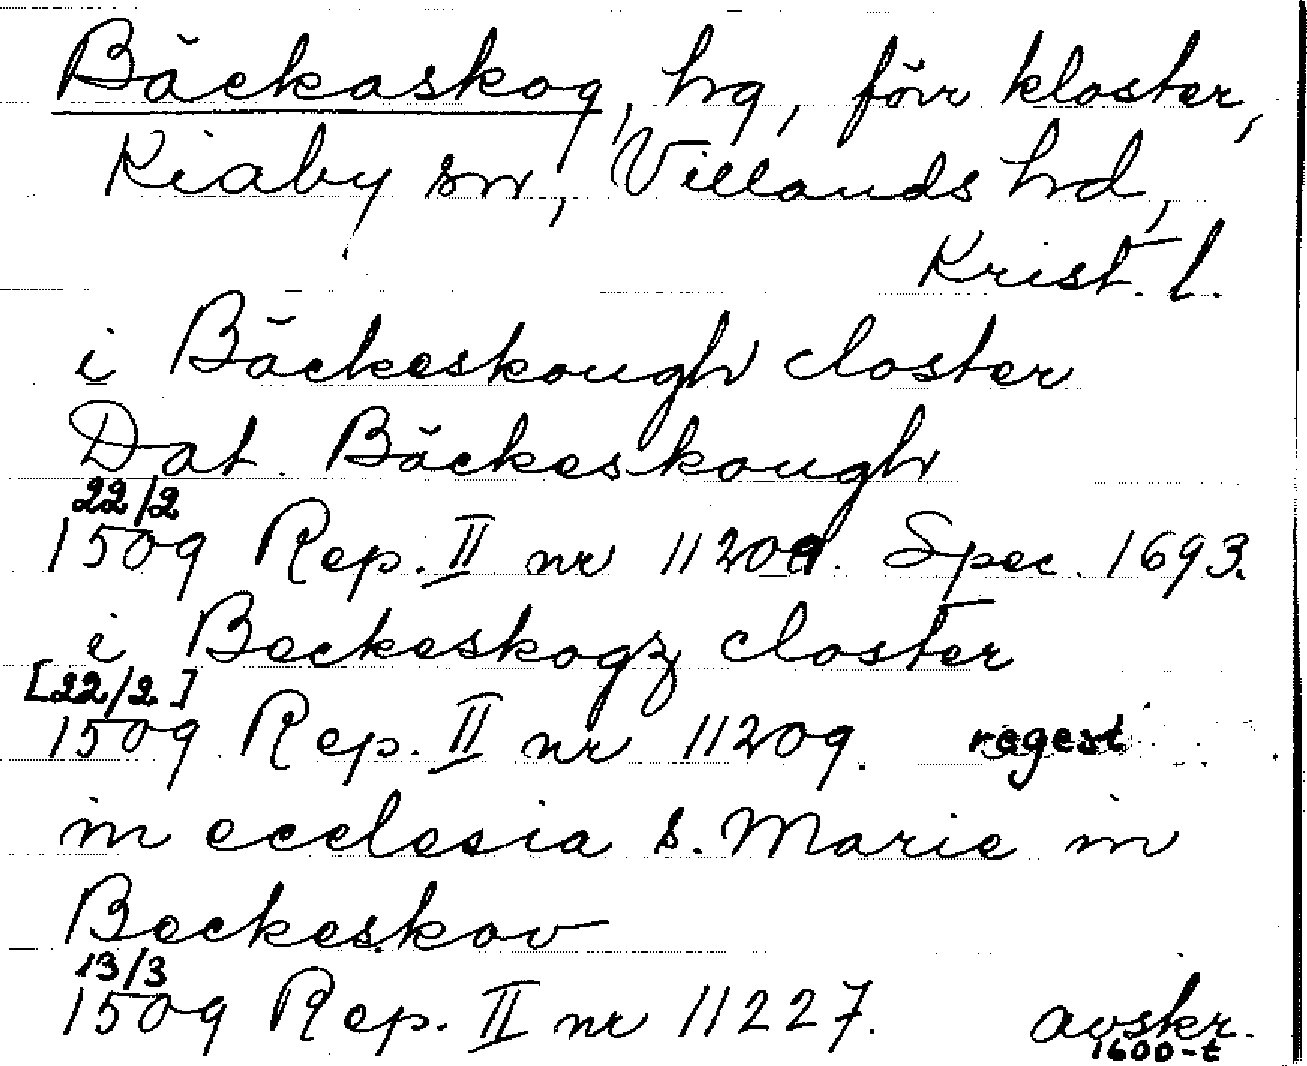 Bäckaskog, hg, förr kloster,
Kiaby sn, Villands hd,
Krist. l.
i Bäckeskough closter
Dat. Bäckeskough
22/2
1509 Rep. II nr 11209. Spec. 1693.
i Beckeskogz closter
[22/2]
1509 Rep. II nr 11209. regest
in ecclesia s. Marie in
Beckeskov
13/3
1509 Rep. II nr 11227. avskr.
1600-t